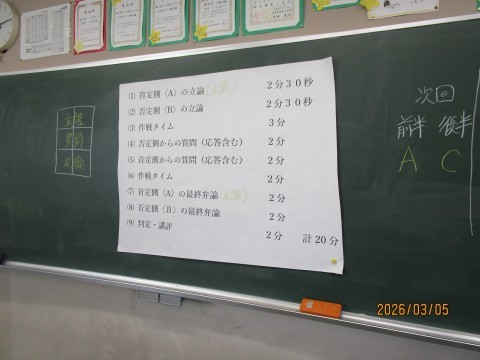 (1) 肯定側〈A〉の立論 2分30秒
(2) 否定側〈B〉の立論 2分30秒
(3) 作戦タイム 3分
(4) 否定側からの質問（応答含む） 2分
(5) 肯定側からの質問（応答含む） 2分
(6) 作戦タイム 2分
(7) 肯定側〈A〉の最終弁論 2分
(8) 否定側〈B〉の最終弁論 2分
(9) 判定・講評 2分 計20分
次回
前半 後半
A C
2026/03/05